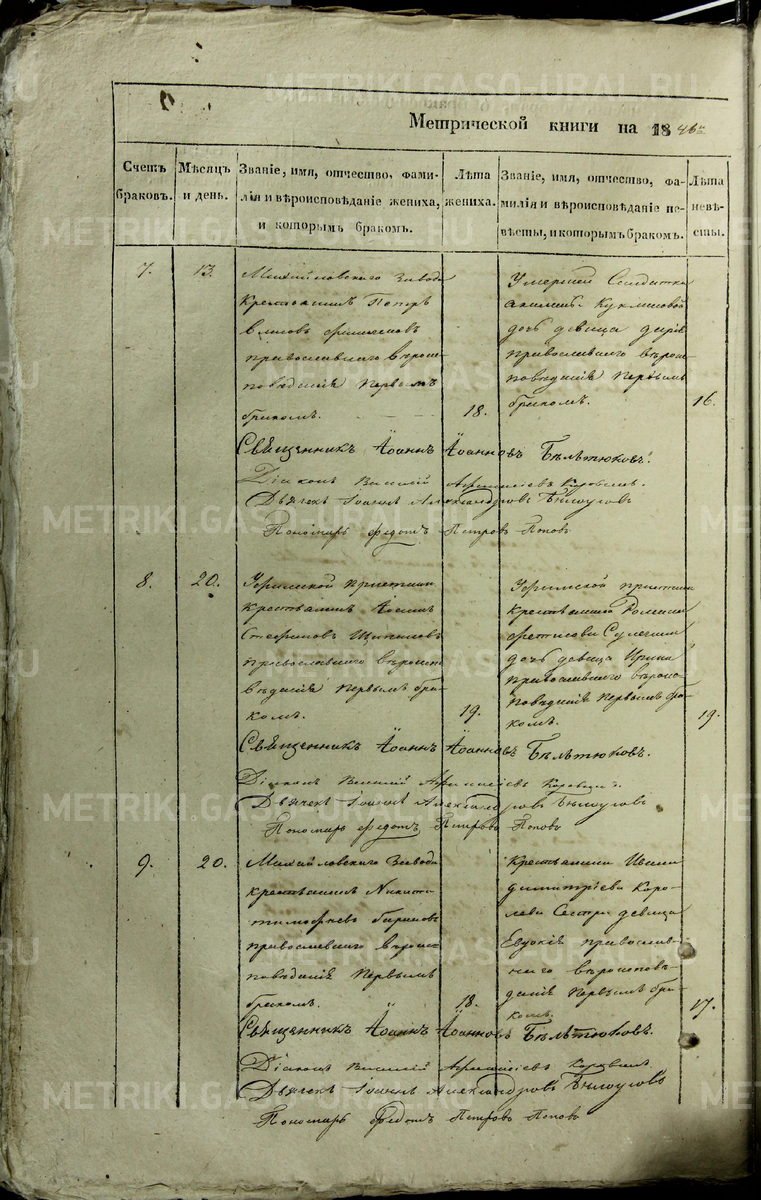 Метрической книги на 1846го
Счетъ браковъ.
Мѣсяцъ и день.
Званіе, имя, отчество, фами-
лія и вѣроисповѣданіе жениха,
и которымъ бракомъ.
Лѣта жениха.
Званіе, имя, отчество, фа-
милія и вѣроисповѣданіе не-
вѣсты, и которымъ бракомъ.
Лѣта невѣ-
сты.
7.
13.
Михайловскаго Завода
крестьянинъ Петръ
православнаго вѣрои-
повѣданія первымъ
бракомъ.
18.
Умершей Солдатки
дочь девица Дарья
православнаго вѣрои-
повѣданія первымъ
бракомъ.
16.
Священникъ Іоаннъ Іоанновъ Бѣлѣтюковъ.
Діаконъ Василій
Дьячекъ Іоаннъ Александровъ Бѣлоусовъ
Пономарь Федотъ Петровъ Поповъ
8.
20.
Уфимской пристани
крестьянинъ
Стефановъ
православнаго вѣроисп
вѣданія первымъ бра-
комъ.
19.
Уфимской пристани
крестьянина Романа
дочь девица Ирина
православнаго вѣроис-
повѣданія первымъ бра-
комъ.
19.
Священникъ Іоаннъ Іоанновъ Бѣлѣтюковъ.
Діаконъ Василій
Дьячекъ Іоаннъ Александровъ Бѣлоусовъ
Пономарь Федотъ Петровъ Поповъ
9.
20.
Михайловскаго Завода
крестьянинъ Никита
Тимофеевъ
православнаго вѣроис-
повѣданія первымъ
бракомъ.
18.
крестьянина Ивана
Димитріева Коро-
лева Сестра девица
Евдокія православ-
наго вѣроисповѣ-
данія первымъ бра-
комъ.
17.
Священникъ Іоаннъ Іоанновъ Бѣлѣтюковъ.
Діаконъ Василій
Дьячекъ Іоаннъ Александровъ Бѣлоусовъ
Пономарь Федотъ Петровъ Поповъ
METRIKI.GASO-URAL.RU